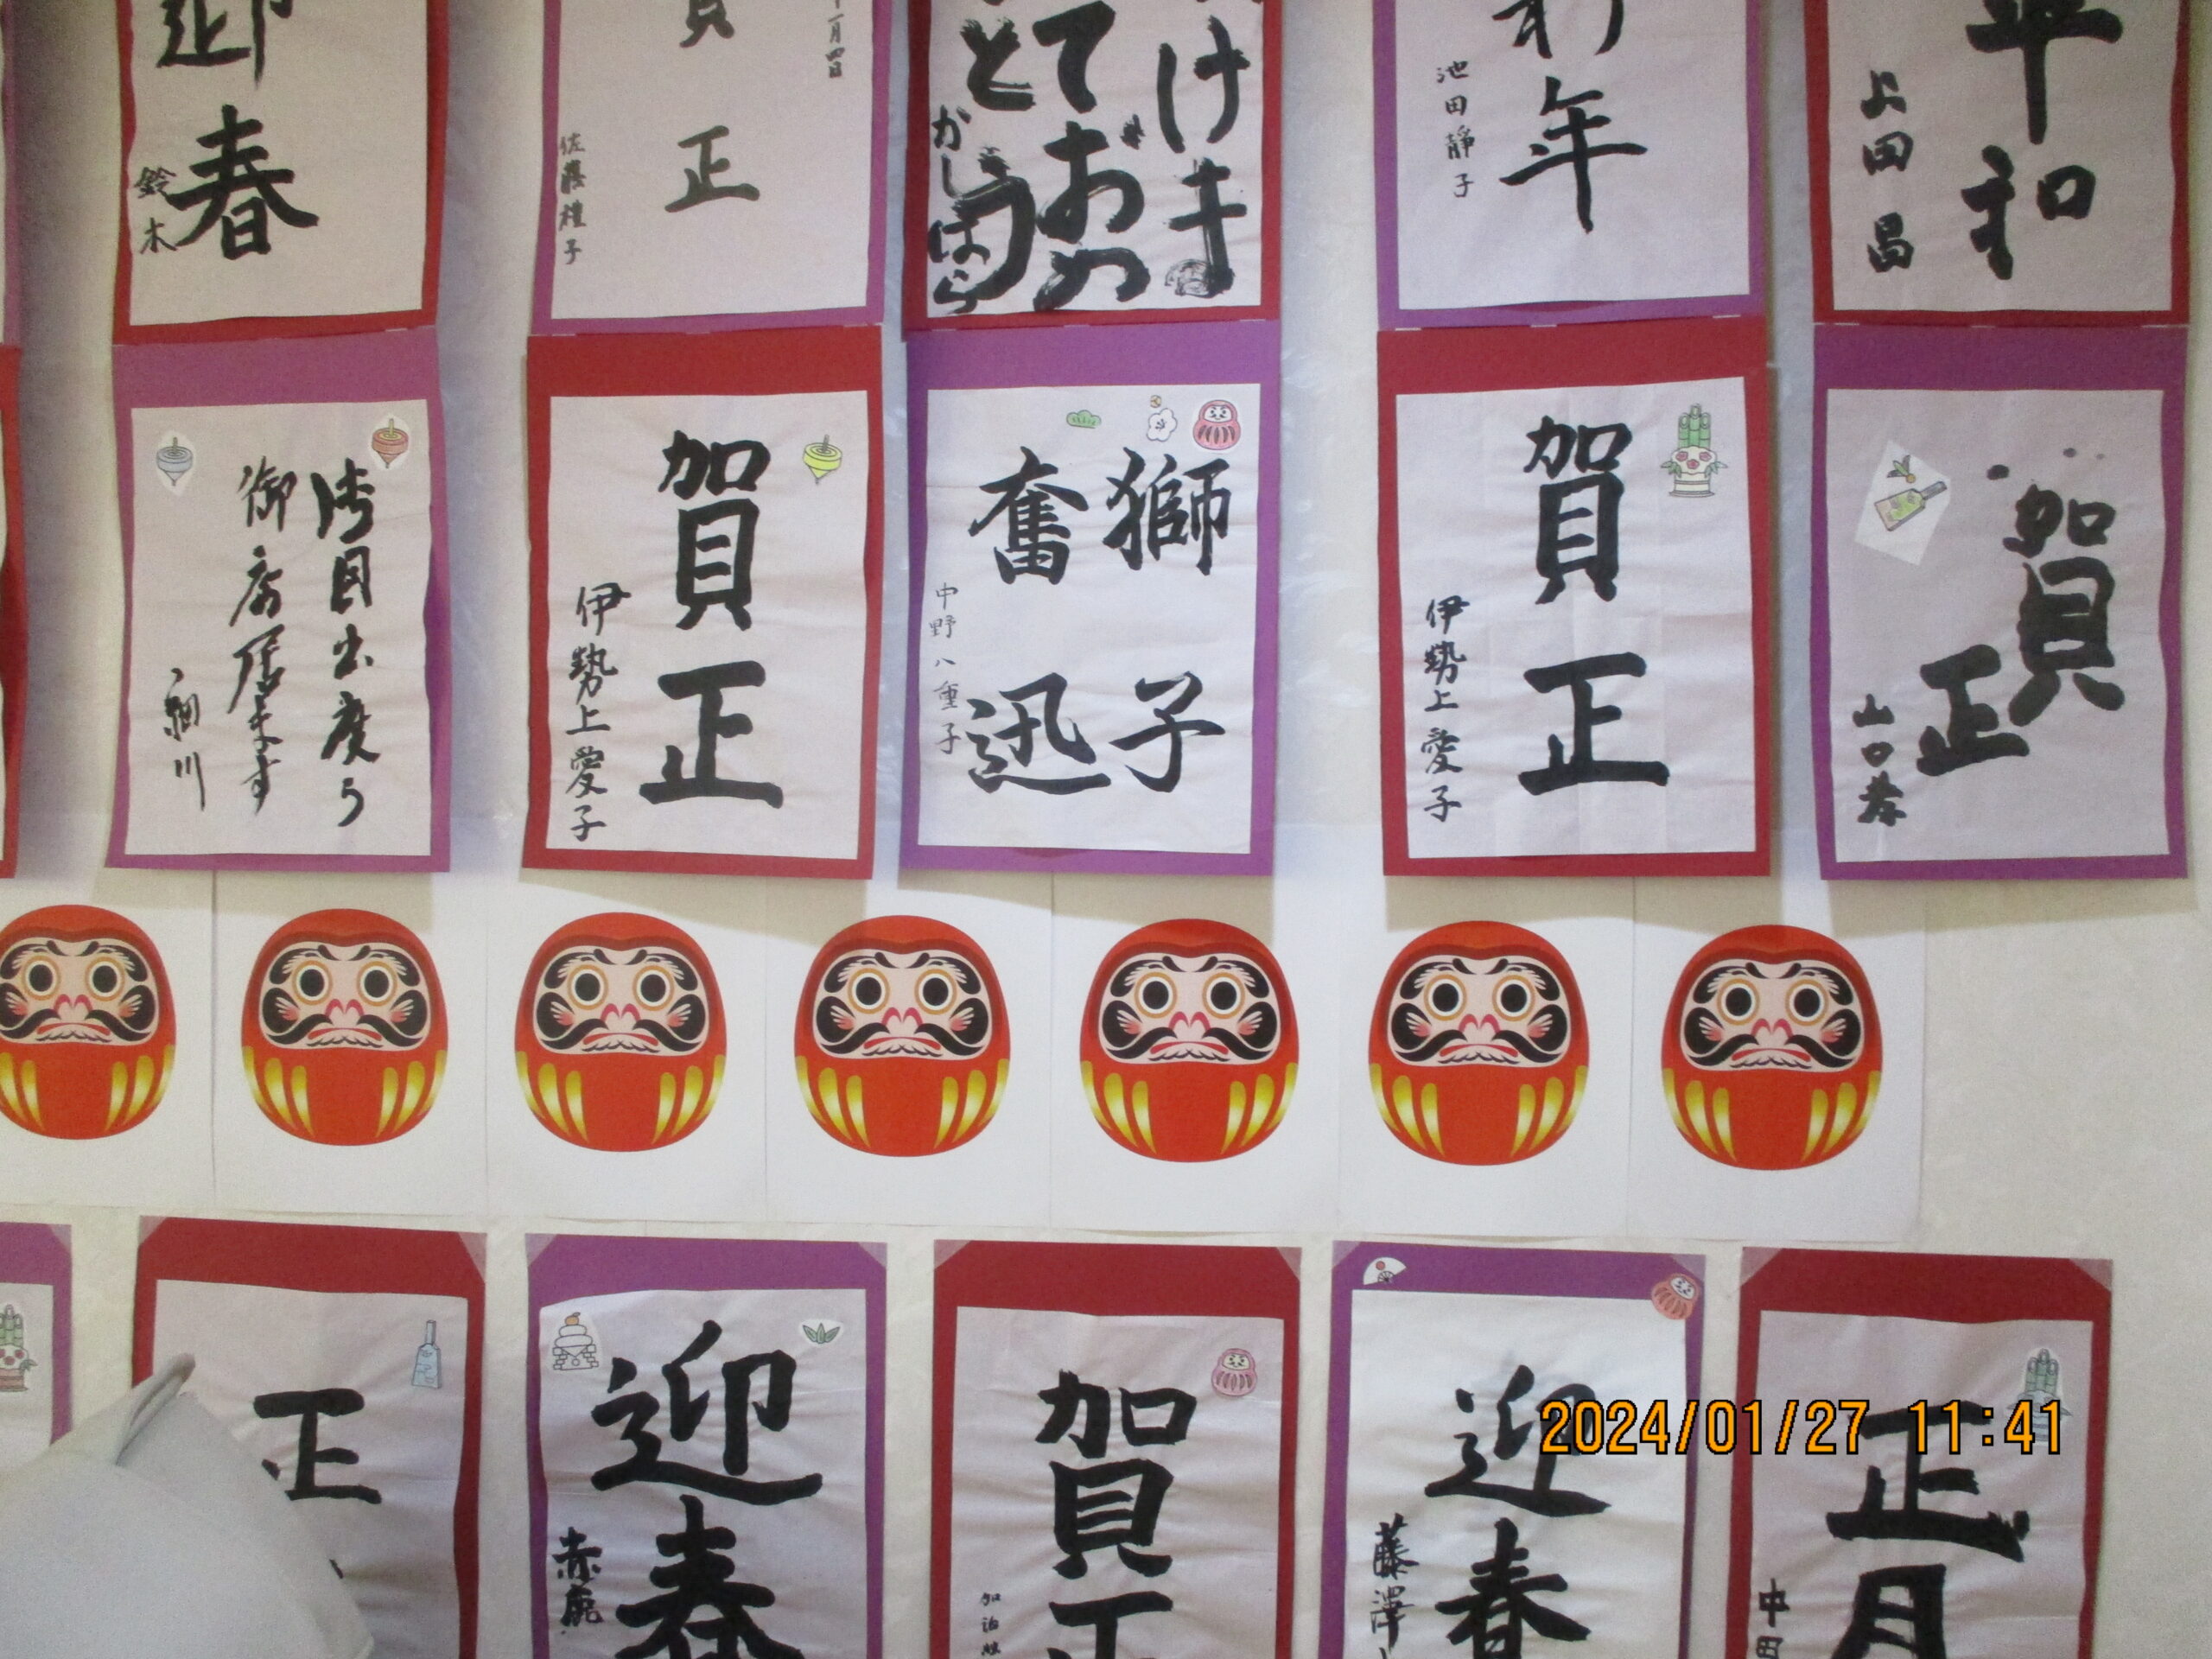 迎春
鈴木
賀正
月四日
佐藤
子
けま
てお
と
かしはら
年
池田靜子
平和
上田昌
御目出度う
御座居ます
細川
賀正
伊勢上愛子
獅子
奮迅
中野八重子
賀正
伊勢上愛子
賀正
山口孝
正
迎春
赤
賀正
加
迎春
藤澤
正月
中田
2024/01/27 11:41